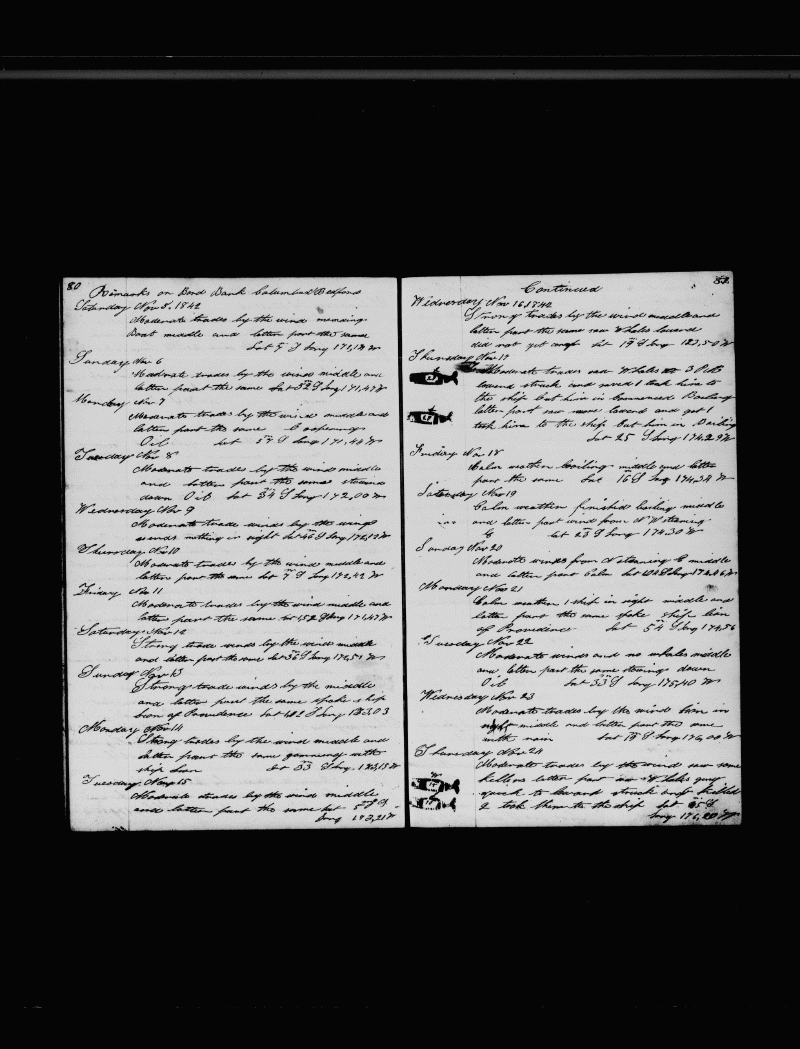 80
Remarks on Bord Bark Columbus Bedford
Saturday Nov 5, 1842
Moderate trades by the wind mending
Boat middle and latter part the same
Lat 5 S Long 171, W
Sunday Nov 6
Moderate trades by the wind middle and
latter part the same Lat S Long 171,47 W
Monday Nov 7
Moderate trades by the wind middle and
latter part the same Coopering
Oil Lat S Long 171,44 W
Tuesday Nov 8
Moderate trades by the wind middle
and latter part the same stowed
down Oil Lat S Long 172,00 W
Wednesday Nov 9
Moderate trade wind by the wind
nothing in sight Lat S Long 172,12 W
Thursday Nov 10
Moderate trades by the wind middle and
latter part the same Lat S Long 172,42 W
Friday Nov 11
Moderate trades by the wind middle and
latter part the same Lat S Long 171,47 W
Saturday Nov 12
Strong trade winds by the wind middle
and latter part the same Lat S Long 172,51 W
Sunday Nov 13
Strong trade winds by the middle
and latter part the same spoke ship
Lion of Providence Lat S Long 03
Monday Nov 14
Strong trades by the wind middle and
latter part the same gamming with
ship Lion Lat S Long 173,15 W
Tuesday Nov 15
Moderate trades by the wind middle
and latter part the same Lat S
Long 173,21 W
Continued
Wednesday Nov 16, 1842
Strong trades by the wind middle and
latter part the same saw Whales leward
did not git Lat S Long 173,50 W
Thursday Nov 17
Moderate trades saw Whales 3
leward struck and saved 1 took him to
the ship Cut him in Commenced Boiling
latter part saw more leward and got 1
took him to the ship Cut him in Boiling
Lat 25 S Long 174,29 W
Friday Nov 18
Calm weather boiling middle and latter
part the same Lat S Long 174,34 W
Saturday Nov 19
Calm weather finished boiling middle
and latter part wind from N W steering
Lat S Long 174,30 W
Sunday Nov 20
Moderate winds from N steering E middle
and latter part Calm Lat S Long 174,46 W
Monday Nov 21
Calm weather 1 ship in sight middle and
latter part the same spoke ship Lion
of Providence Lat S Long 174,56
Tuesday Nov 22
Moderate winds and no whales middle
and latter part the same stowing down
Oil Lat S Long 175,40 W
Wednesday Nov 23
Moderate trades by the wind Lion in
sight middle and latter part the same
with rain Lat S Long 176,00 W
Thursday Nov 24
Moderate trades by the wind saw some
killers latter part saw Whales
to leward struck and killed
2 took them to the ship Lat S
Long 176,20 W